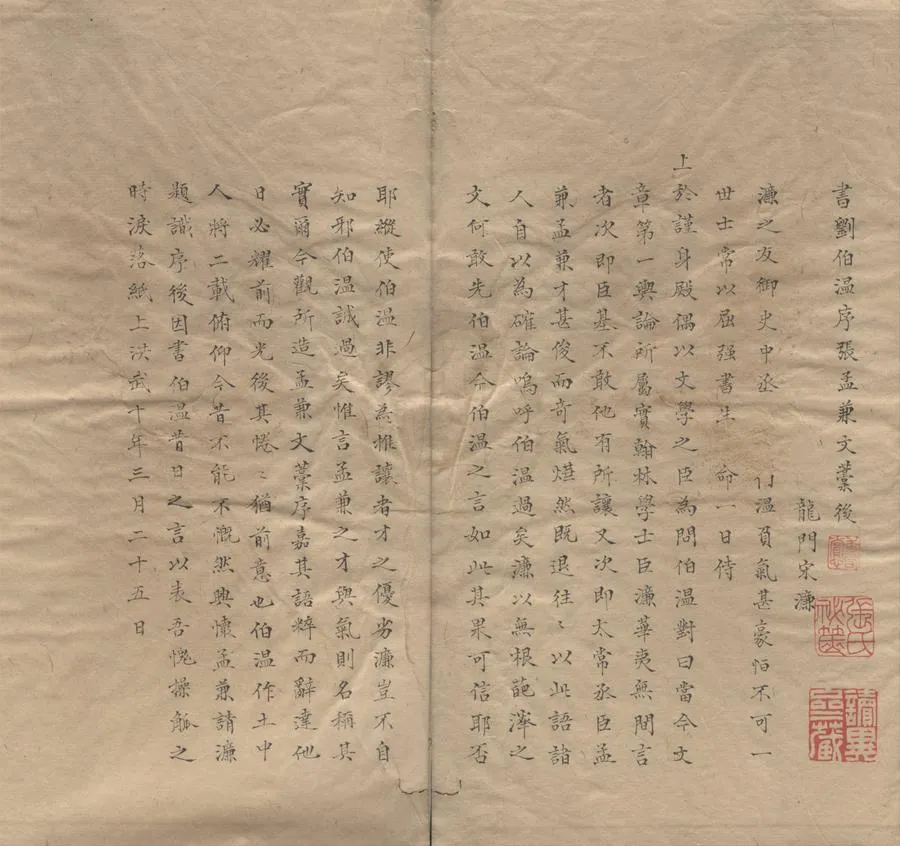 書劉伯温序張孟兼文藁後
龍門宋濂
濂之友御史中丞 伯温負氣甚豪恒不可一
世士常以屈强書生 命一日侍
上於謹身殿偶以文學之臣為問伯温對曰當今文
章第一輿論所屬實翰林學士臣濂華夷無間言
者次即臣基不敢他有所讓又次即太常丞臣孟
兼孟兼才甚俊而奇氣燁然既退往〻以此語諸
人自以為確論嗚呼伯温過矣濂以無根葩澤之
文何敢先伯温今伯温之言如此其果可信耶否
耶縱使伯温非謬為推讓者才之優劣濂豈不自
知邪伯温誠過矣惟言孟兼之才與氣則名稱其
實爾今觀所造孟兼文藁序嘉其語粹而辭達他
日必耀前而光後其惓〻猶前意也伯温作土中
人將二載俯仰今昔不能不慨然興懷孟兼請濂
題識序後因書伯温昔日之言以表吾愧操觚之
時淚落紙上洪武十年三月二十五日